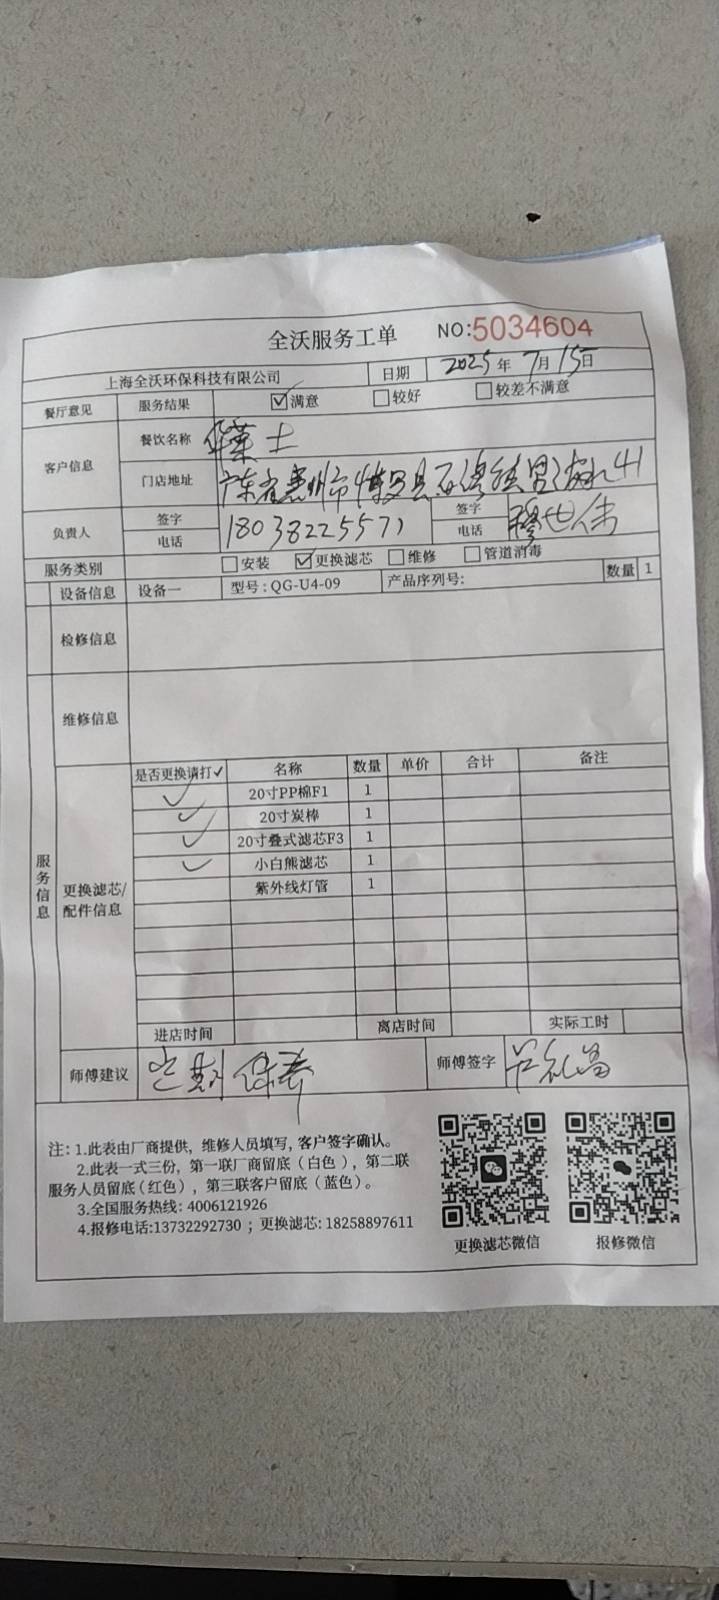 全沃服务工单 NO:5034604
上海全沃环保科技有限公司 日期 2025年7月15日
餐厅意见 服务结果 ☑满意 □较好 □较差不满意
客户信息 餐饮名称 华莱士
门店地址 广东省惠州市博罗县石湾镇 41
负责人 签字 签字
电话 18038225571 电话
服务类别 □安装 ☑更换滤芯 □维修 □管道消毒
设备信息 设备一 型号:QG-U4-09 产品序列号: 数量 1
检修信息
维修信息
服务信息
更换滤芯/配件信息
是否更换请打✓ 名称 数量 单价 合计 备注
✓ 20寸PP棉F1 1
✓ 20寸炭棒 1
✓ 20寸叠式滤芯F3 1
✓ 小白熊滤芯 1
紫外线灯管 1
进店时间 离店时间 实际工时
师傅建议 定期保养 师傅签字
注: 1.此表由厂商提供, 维修人员填写, 客户签字确认。
2.此表一式三份, 第一联厂商留底(白色), 第二联
服务人员留底(红色), 第三联客户留底(蓝色)。
3.全国服务热线: 4006121926
4.报修电话:13732292730 ; 更换滤芯: 18258897611
更换滤芯微信 报修微信